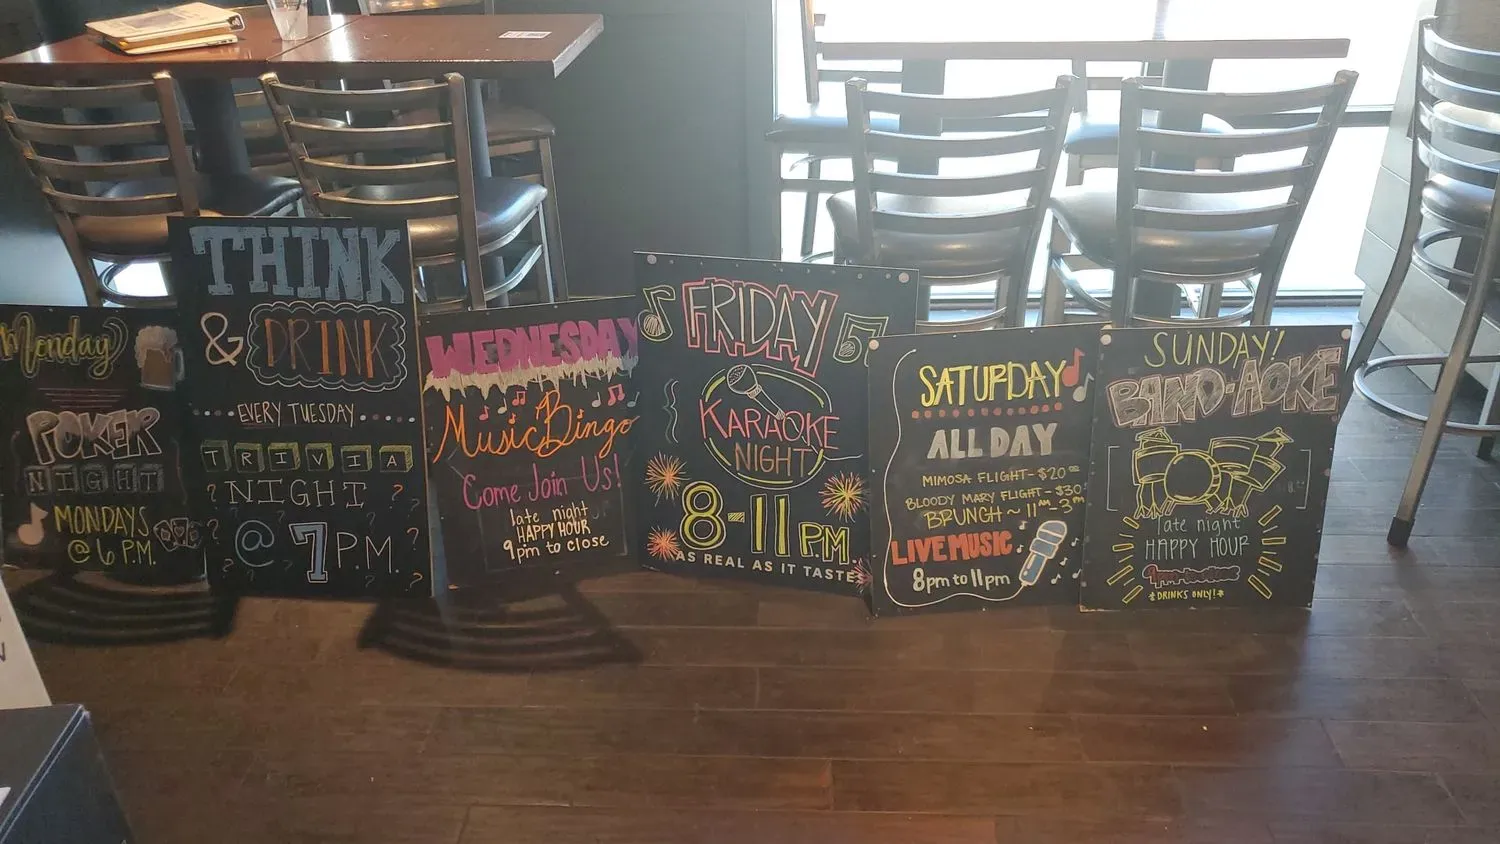 Monday
POKER
NIGHT
MONDAYS
@ 6 P.M.
THINK
& DRINK
EVERY TUESDAY
TRIVIA
NIGHT
@ 7 P.M.
WEDNESDAY
Music Bingo
Come Join Us!
late night
HAPPY HOUR
9pm to close
FRIDAY
KARAOKE
NIGHT
8-11 P.M.
AS REAL AS IT TASTES
SATURDAY
ALL DAY
MIMOSA FLIGHT- $20
BLOODY MARY FLIGHT - $30
BRUNCH ~ 11AM-3PM
LIVE MUSIC
8pm to 11pm
SUNDAY!
BAND-AOKE
late night
HAPPY HOUR
9pm to close
*DRINKS ONLY!*